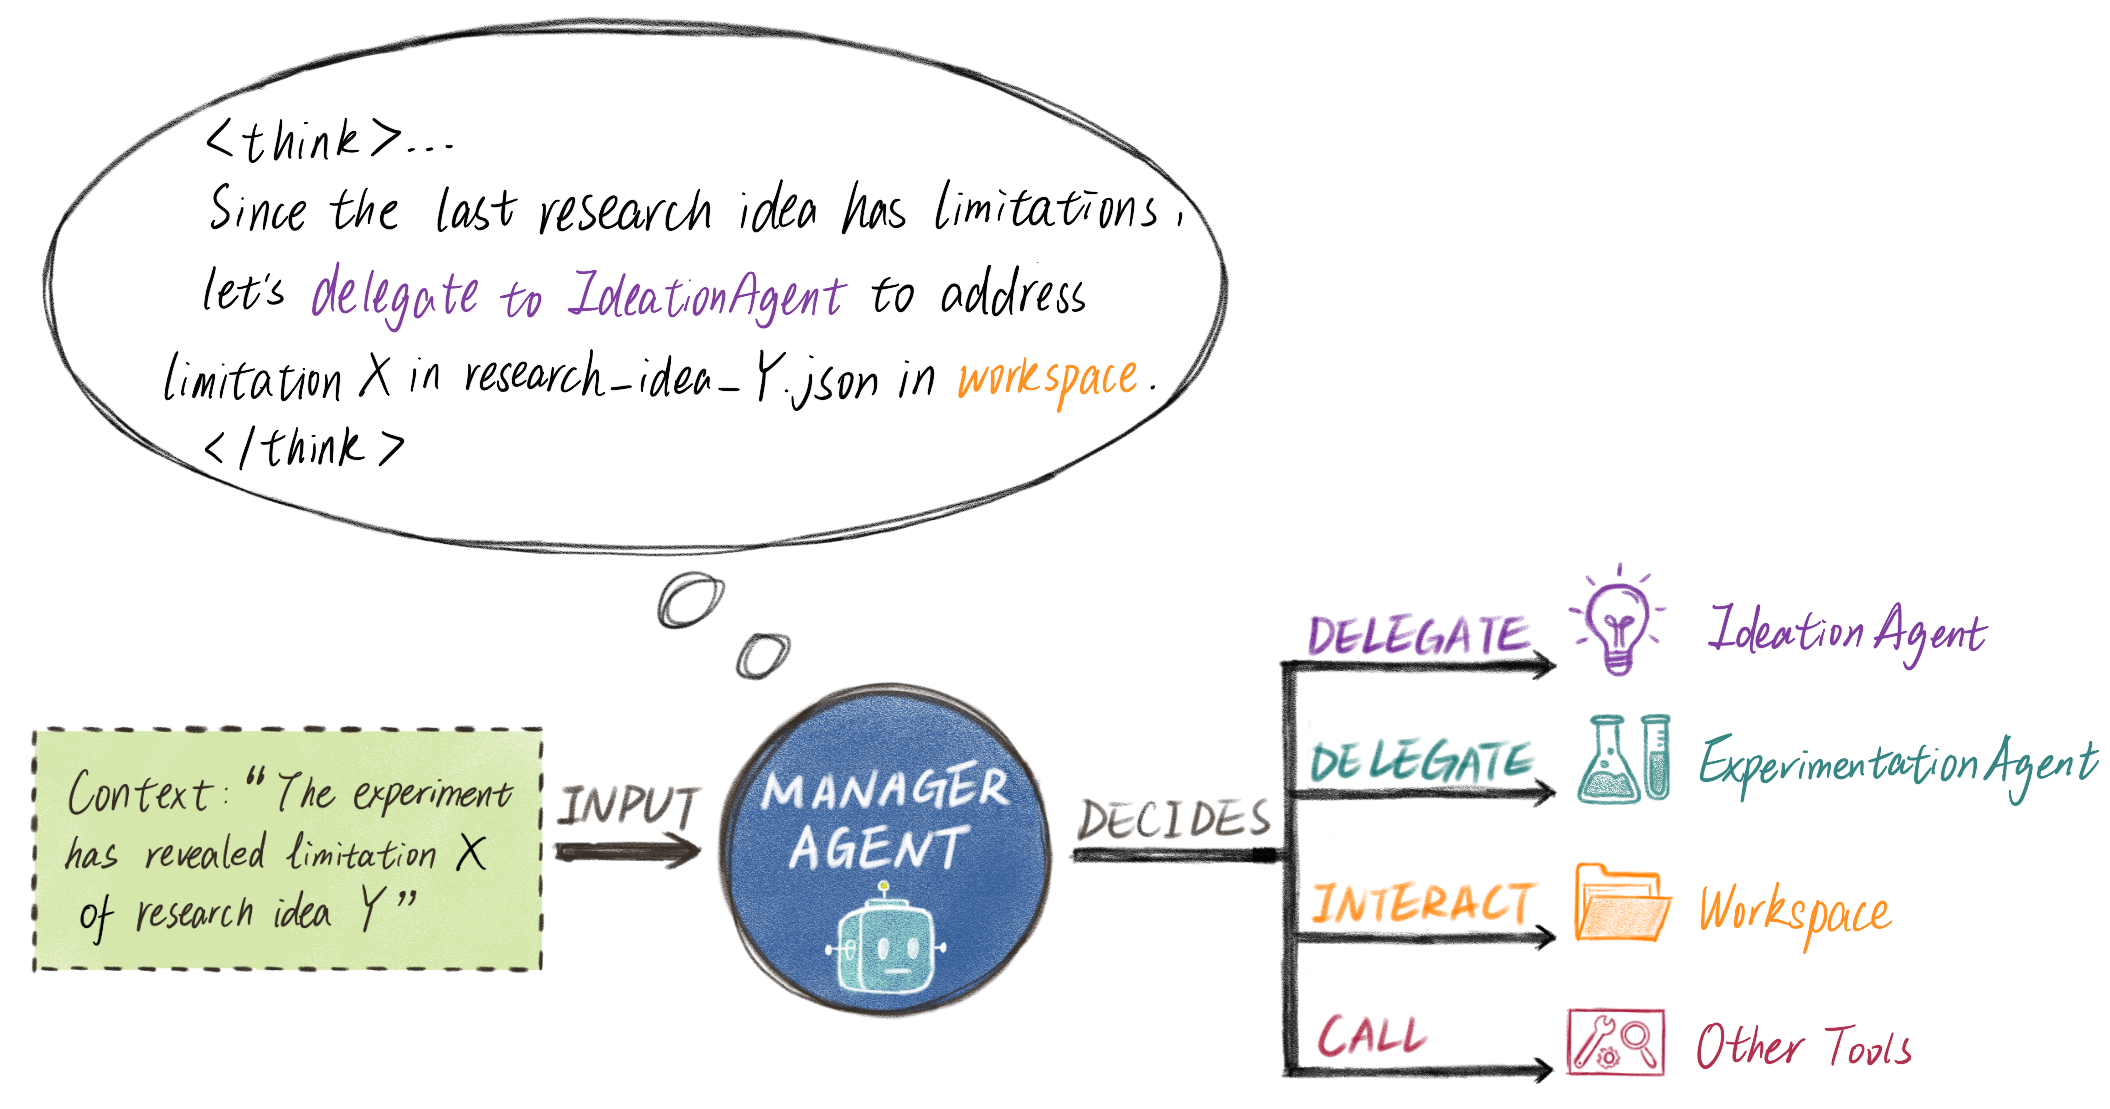 <think>...
Since the last research idea has limitations,
let's delegate to IdeationAgent to address
limitation X in research_idea_Y.json in workspace.
</think>
Context: “The experiment
has revealed limitation X
of research idea Y”
INPUT
MANAGER
AGENT
DECIDES
DELEGATE
Ideation Agent
DELEGATE
Experimentation Agent
INTERACT
Workspace
CALL
Other Tools